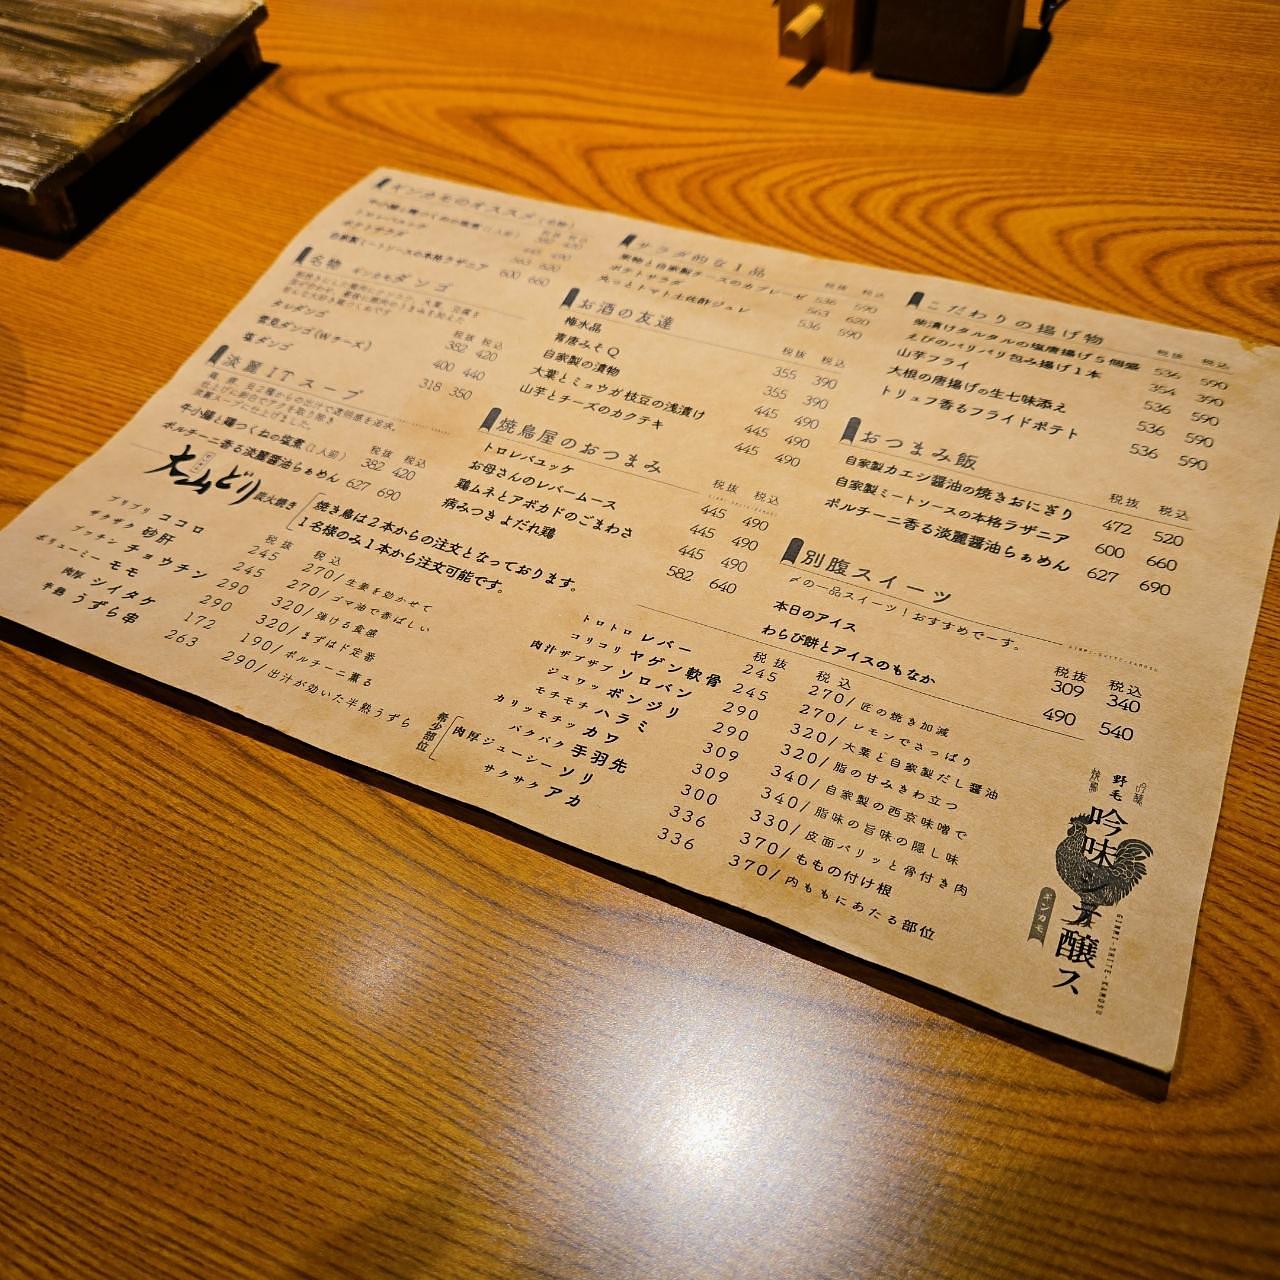 ギンカモのオススメ
税抜 税込
牛小腸と鶏つくねの塩煮(1人前) 382 420
トロレバユッケ 445 490
ポテトサラダ 563 620
自家製ミートソースの本格ラザニア 600 660
名物 ギンカモダンゴ
税抜 税込
タレダンゴ 382 420
雲見ダンゴ(Wチーズ) 400 440
塩ダンゴ 318 350
淡麗ITスープ
税抜 税込
牛小腸と鶏つくねの塩煮(1人前) 382 420
ポルチーニ香る淡麗醤油らぁめん 627 690
サラダ的な1品
税抜 税込
果物と自家製チーズのカプレーゼ 536 590
ポテトサラダ 563 620
丸っとトマト土佐酢ジュレ 536 590
お酒の友達
税抜 税込
梅水晶 355 390
青唐みそQ 355 390
自家製の漬物 445 490
大葉とミョウガ枝豆の浅漬け 445 490
山芋とチーズのカクテキ 445 490
焼鳥屋のおつまみ
税抜 税込
トロレバユッケ 445 490
お母さんのレバームース 445 490
鶏ムネとアボカドのごまわさ 445 490
病みつきよだれ鶏 582 640
こだわりの揚げ物
税抜 税込
柴漬けタルタルの塩唐揚げ5個盛 536 590
えびのパリパリ包み揚げ1本 354 390
山芋フライ 536 590
大根の唐揚げの生七味添え 536 590
トリュフ香るフライドポテト 536 590
おつまみ飯
税抜 税込
自家製カエシ醤油の焼きおにぎり 472 520
自家製ミートソースの本格ラザニア 600 660
ポルチーニ香る淡麗醤油らぁめん 627 690
別腹スイーツ
〆の一品スイーツ!おすすめでーす。
税抜 税込
本日のアイス 309 340
わらび餅とアイスのもなか 490 540
大山どり 炭火焼き
焼き鳥は2本からの注文となっております。
1名様のみ1本から注文可能です。
税抜 税込
プリプリ ココロ 245 270/生姜を効かせて
ザクザク 砂肝 245 270/ゴマ油で香ばしい
プッチン チョウチン 290 320/弾ける食感
ボリューミー モモ 290 320/まずはド定番
肉厚 シイタケ 172 190/ポルチーニ薫る
半熟 うずら串 263 290/出汁が効いた半熟うずら
税抜 税込
トロトロ レバー 245 270/匠の焼き加減
コリコリ ヤゲン軟骨 245 270/レモンでさっぱり
肉汁ザブザブ ソロバン 290 320/大葉と自家製だし醤油
ジュワッ ボンジリ 290 320/脂の甘みきわ立つ
モチモチ ハラミ 309 340/自家製の西京味噌で
カリッモチッ カワ 309 340/脂味の旨味の隠し味
パクパク 手羽先 300 330/皮面パリッと骨付き肉
希少部位
肉厚ジューシー ソリ 336 370/ももの付け根
サクサク アカ 336 370/内ももにあたる部位
焼鳥 野毛 吟醸
吟味シテ醸ス
ギンカモ
GINMI-SHITE-KAMOSU